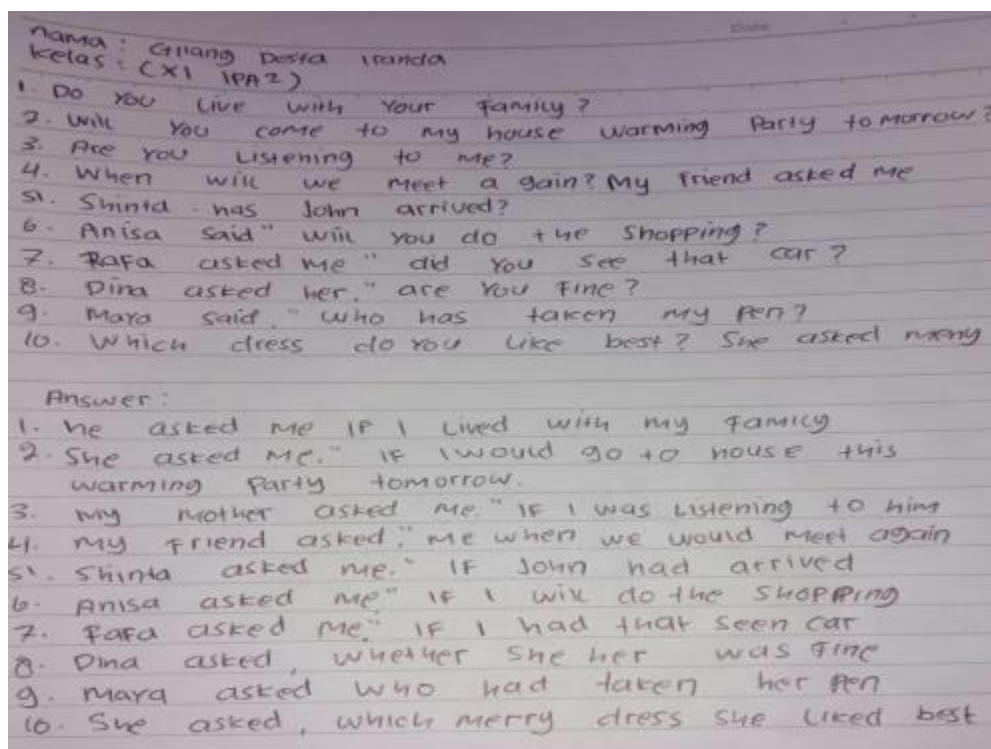 Date
Nama : Gilang Desta Iranda
Kelas : (XI IPA 2)
1. Do You Live with Your Family?
2. Will You come to my house warming Party tomorrow?
3. Are You Listening to Me?
4. When will we meet a gain? My Friend asked me
5. Shinta has John arrived?
6. Anisa said" will you do the Shopping?
7. Rafa asked me" did You see that car?
8. Dina asked her." are You Fine?
9. Mara said." who has taken my Pen?
10. Which dress do you like best? She asked
Answer:
1. he asked me IF I Lived with my Family
2. She asked Me." IF I would go to house this
warming Party tomorrow.
3. My mother asked me." IF I was Listening to him
4. My Friend asked," me when we would meet again
5. Shinta asked me." IF John had arrived
6. Anisa asked me" IF I will do the Shopping
7. Fafa asked Me." IF I had that seen car
8. Dina asked, whether She her was Fine
9. Mara asked who had taken her Pen
10. She asked, which merry dress she Liked best